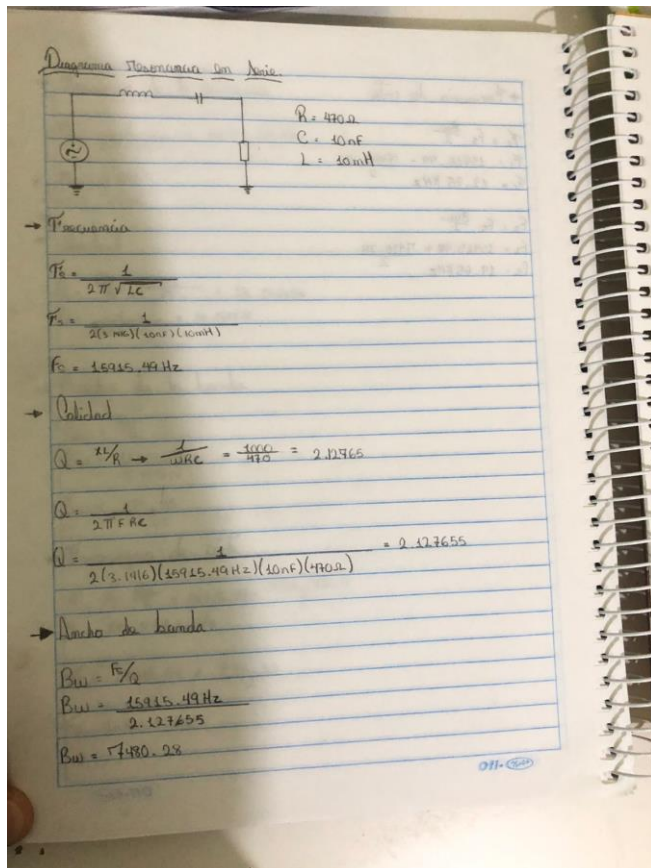 Diagrama resonancia en serie.
R = 470Ω
C = 10nF
L = 10mH
→ Frecuencia
Fo = 1 / 2π√LC
Fo = 1 / 2(3.1416)(10nF)(10mH)
Fo = 15915.49 Hz
→ Calidad
Q = XL/R → 1/ωRC = 1000/470 = 2.12765
Q = 1 / 2πFRC
Q = 1 / 2(3.1416)(15915.49Hz)(10nF)(470Ω) = 2.127655
→ Ancho de banda.
Bw = Fo/Q
Bw = 15915.49Hz / 2.127655
Bw = 7480.28